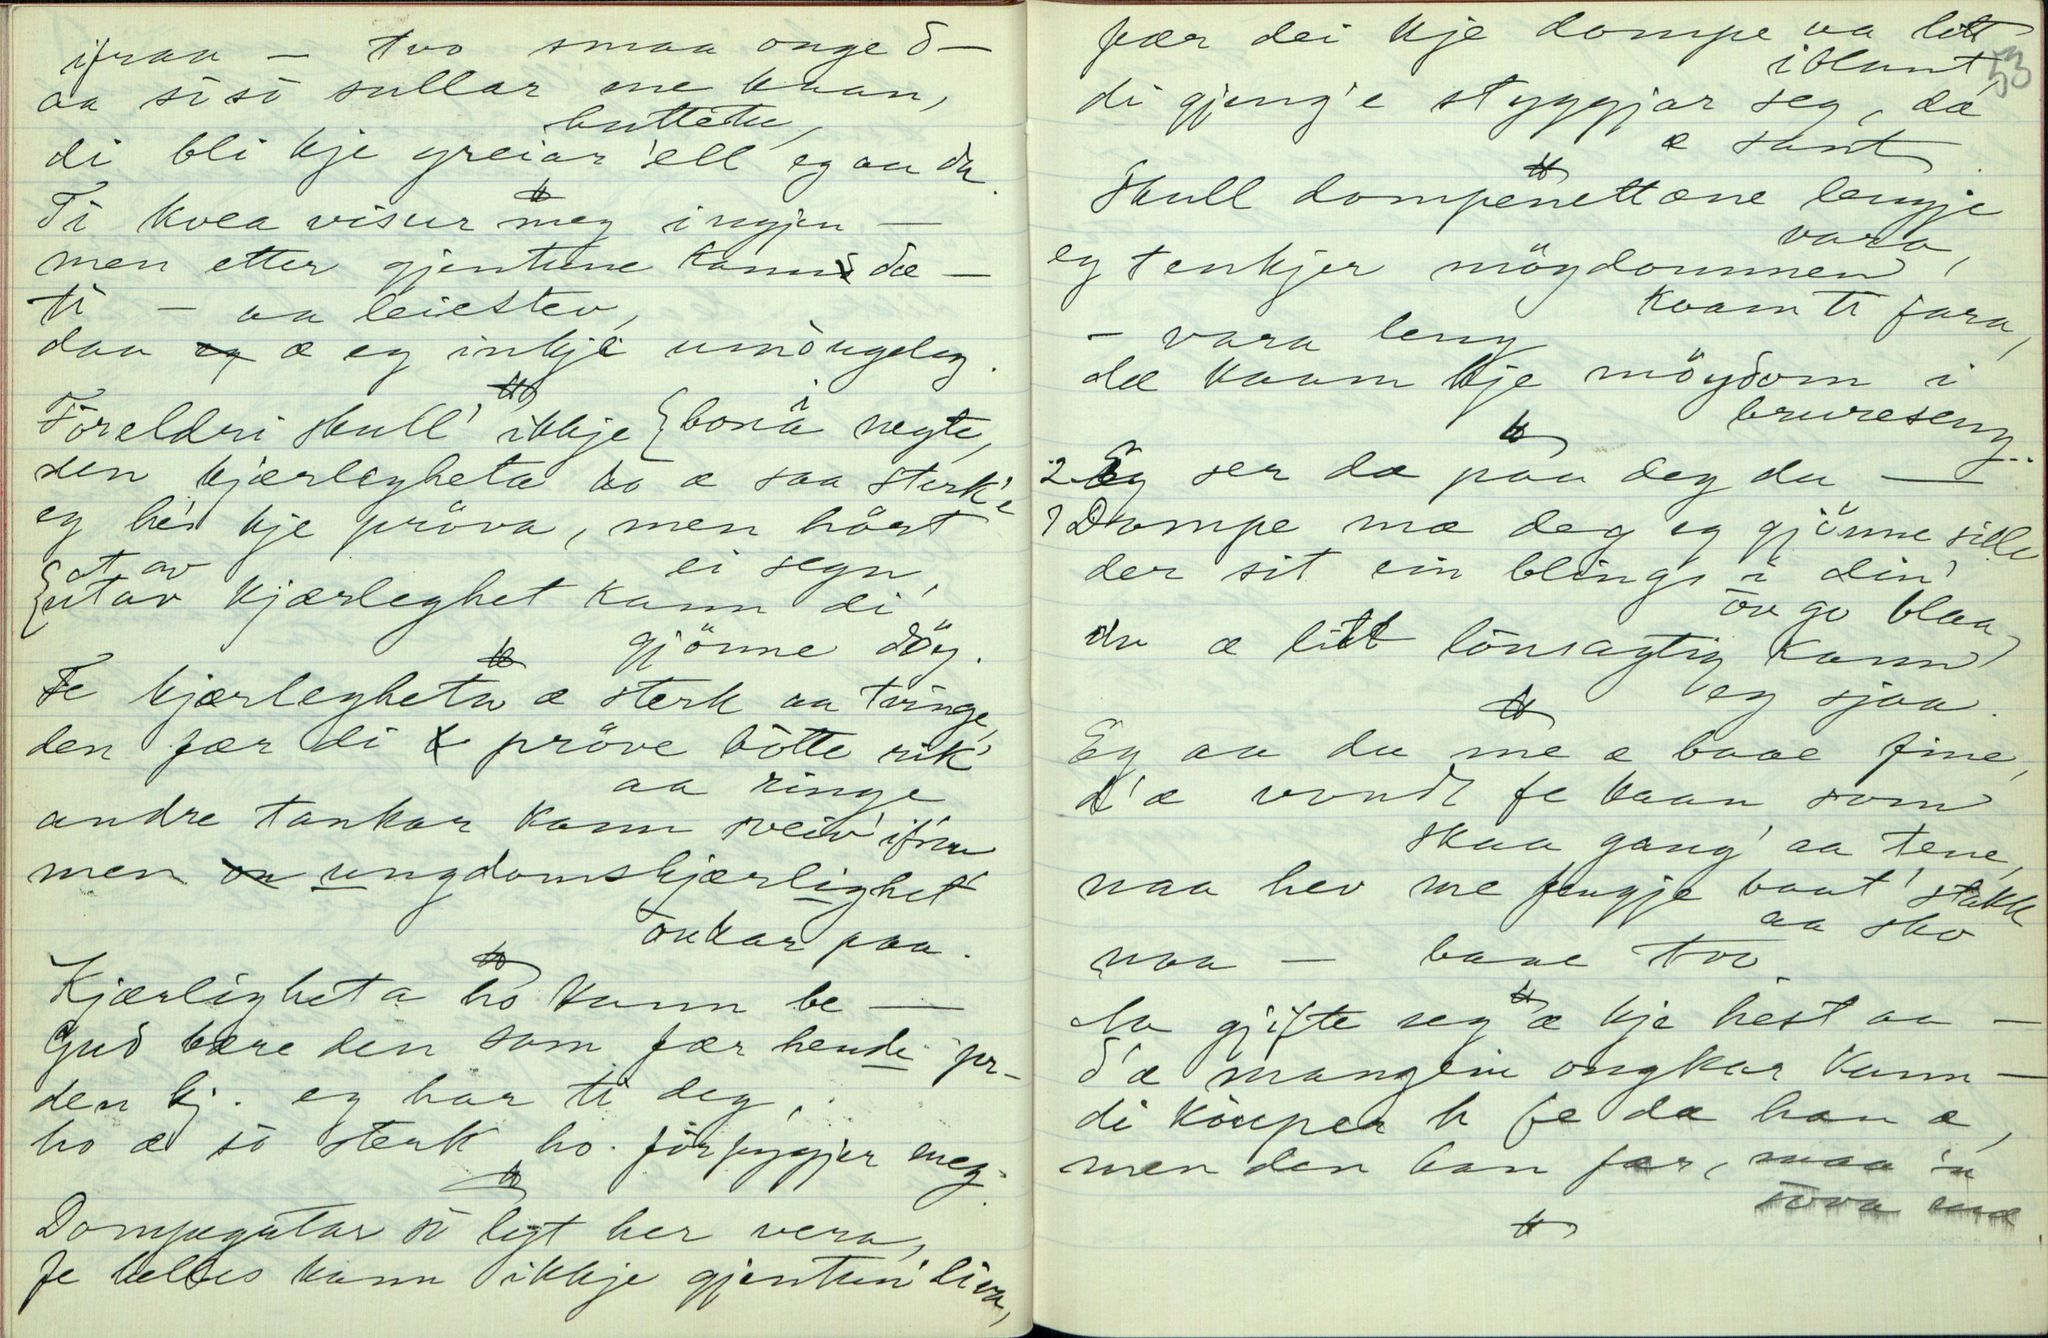 ifraa — tvo smaa onge d—
aa sisi sullar me kaan,
di bli kje greiar 'ell eg aa du.
buttetu,
Ti kvea visur meg ingjen —
men etter gjentune kann dæ —
ti — aa leiestev,
daa eg æ eg inkje umöugeleg.
Foreldri skull' ikkje bona negte,
den kjærlegheta ho æ saa sterk'e
eg hev kje pröva, men hört
ei segn,
at av
utav kjærleghet kann di
gjönne döy.
Fe kjærlegheta æ sterk aa tvinge,
den fær di pröve bötte rik'
aa ringe
andre tankar kann sveiv' ifraa
men ungdomskjærlighet
önkar paa.
Kjærligheta ho kann be —
Gud bære den som fær hende pr—
den kj. eg har ti deg,
ho æ so sterk ho forfyggjer meg.
Dompegutar so ligt her vera,
fe helles kann ikkje gjentun' liva,
53
fær dei kje dompe va litt
iblant,
di gjeng'e styggjar seg, dæ
æ sant
Skull dompenettæne lengje
vara,
eg tenkjer möydommen
kvam ti fara,
— vara leng
dæ kaam kje möydom i
brureseng.
2 Eg ser dæ paa deg du —
1 Dompe mæ deg eg gjönne ville
der sit ein blings i din'
ov go blaa
du æ litt lönsagtig kann
eg sjaa.
Eg aa du me æ baae fine,
d'æ vondt fe kaan som
skaa gang' aa tene,
naa hev me fengje baat' stakk
aa sko
naa — baae tvo
Aa gjifte seg æ kje hest aa —
d'æ mangein ongkar kann —
di köuper h fe dæ han æ,
men den han fær, maa 'n
sova mæ